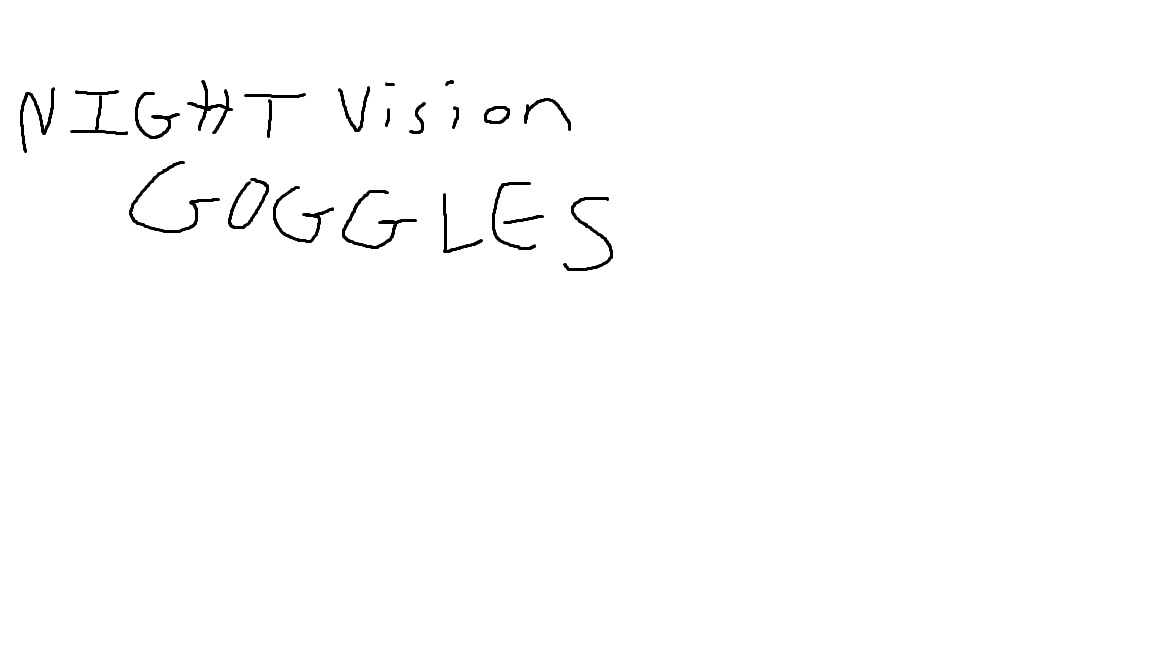 NIGHT Vision
GOGGLES